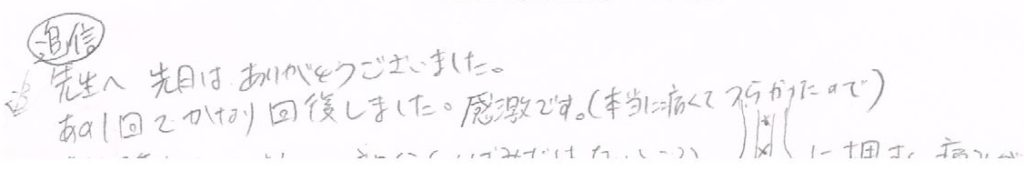 追信
先生へ 先日は ありがとうございました。
あの1回でかなり回復しました。感激です。(本当に痛くて つらかったので)